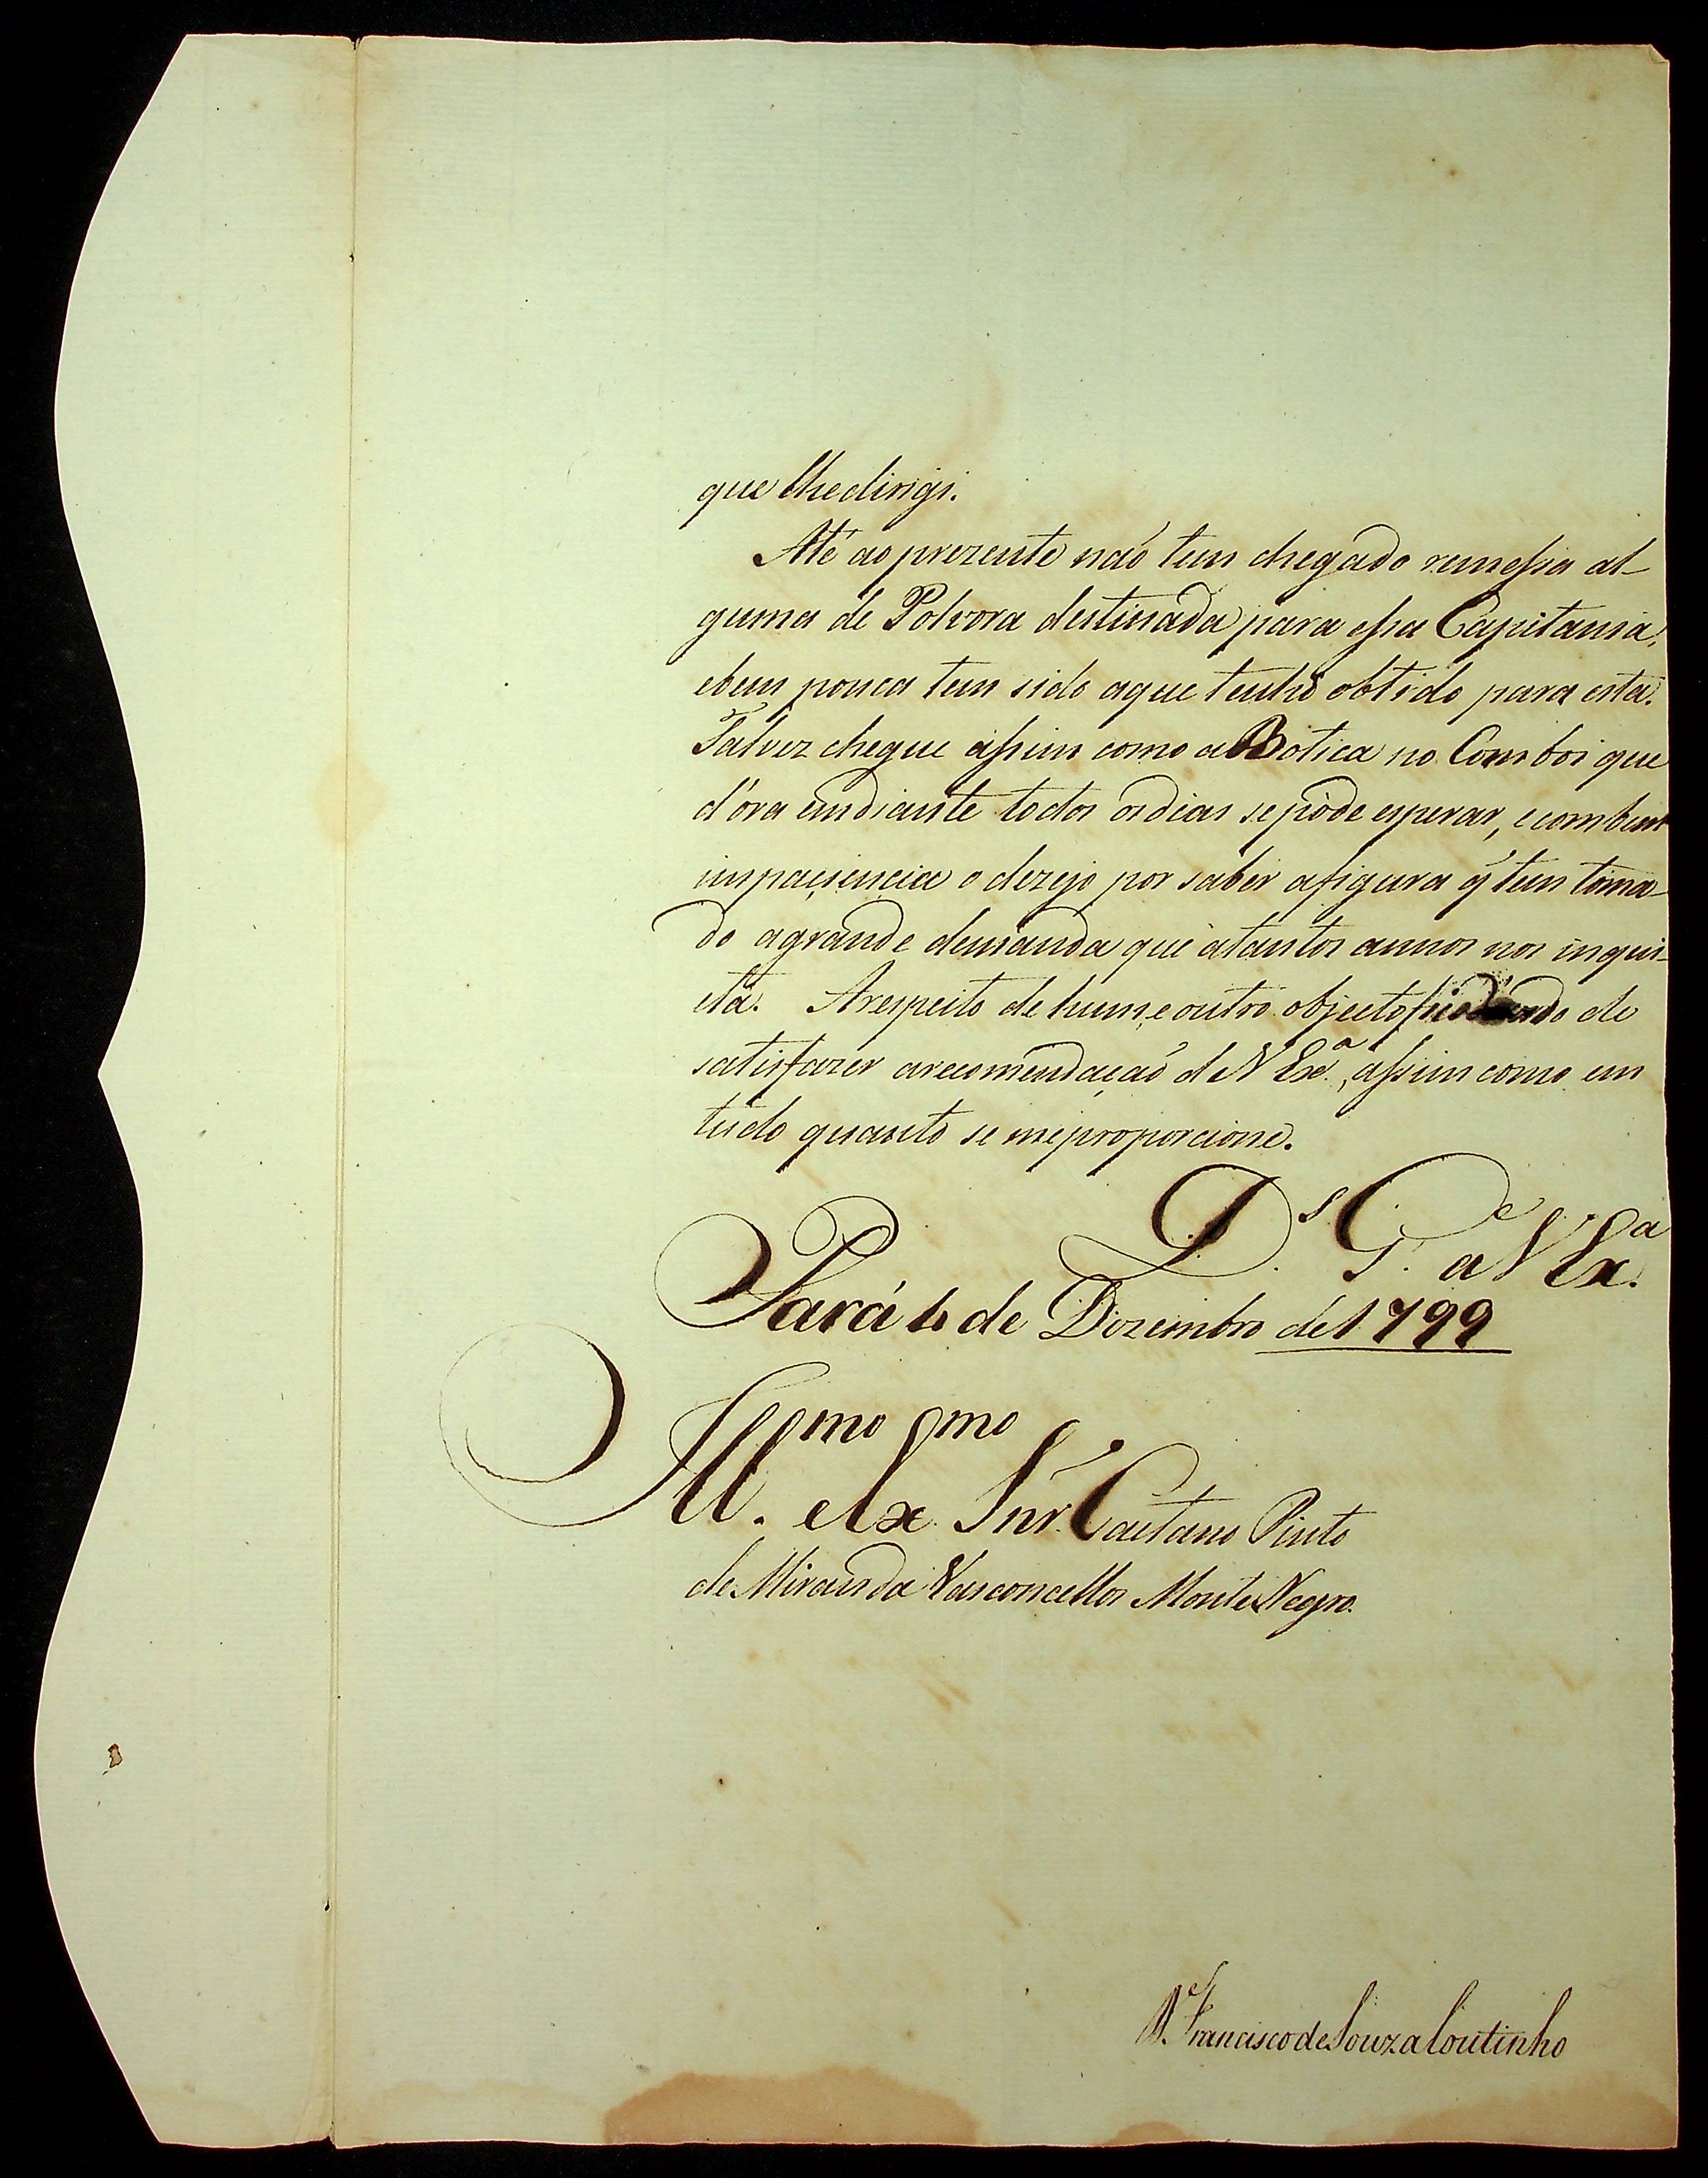 que lhe dirigi.
Até ao prezente naõ tem chegado remessa al-
guma de Polvora destinada para essa Capitania,
e bem pouca tem sido a que tenho obtido para esta.
Talvez chegue assim como a Botica no Comboi que
d'ora emdiante todos os dias se pode esperar, e com bem
impaciencia o dezejo por saber a figura q̃ tem toma-
do a grande demanda que a tantos annos nos inqui-
eta. A respeito de hum, e outro objecto de
satisfazer a recomendaçaõ de V Exª., assim como em
tudo quanto se me proporcione.
D.s G.e a V Ex.a
Pará 4 de Dezembro de 1799
Ill.mo e Ex.mo Snr. Caetano Pinto
de Miranda Vasconcellos Monte Negro.
Francisco de Souza Coutinho